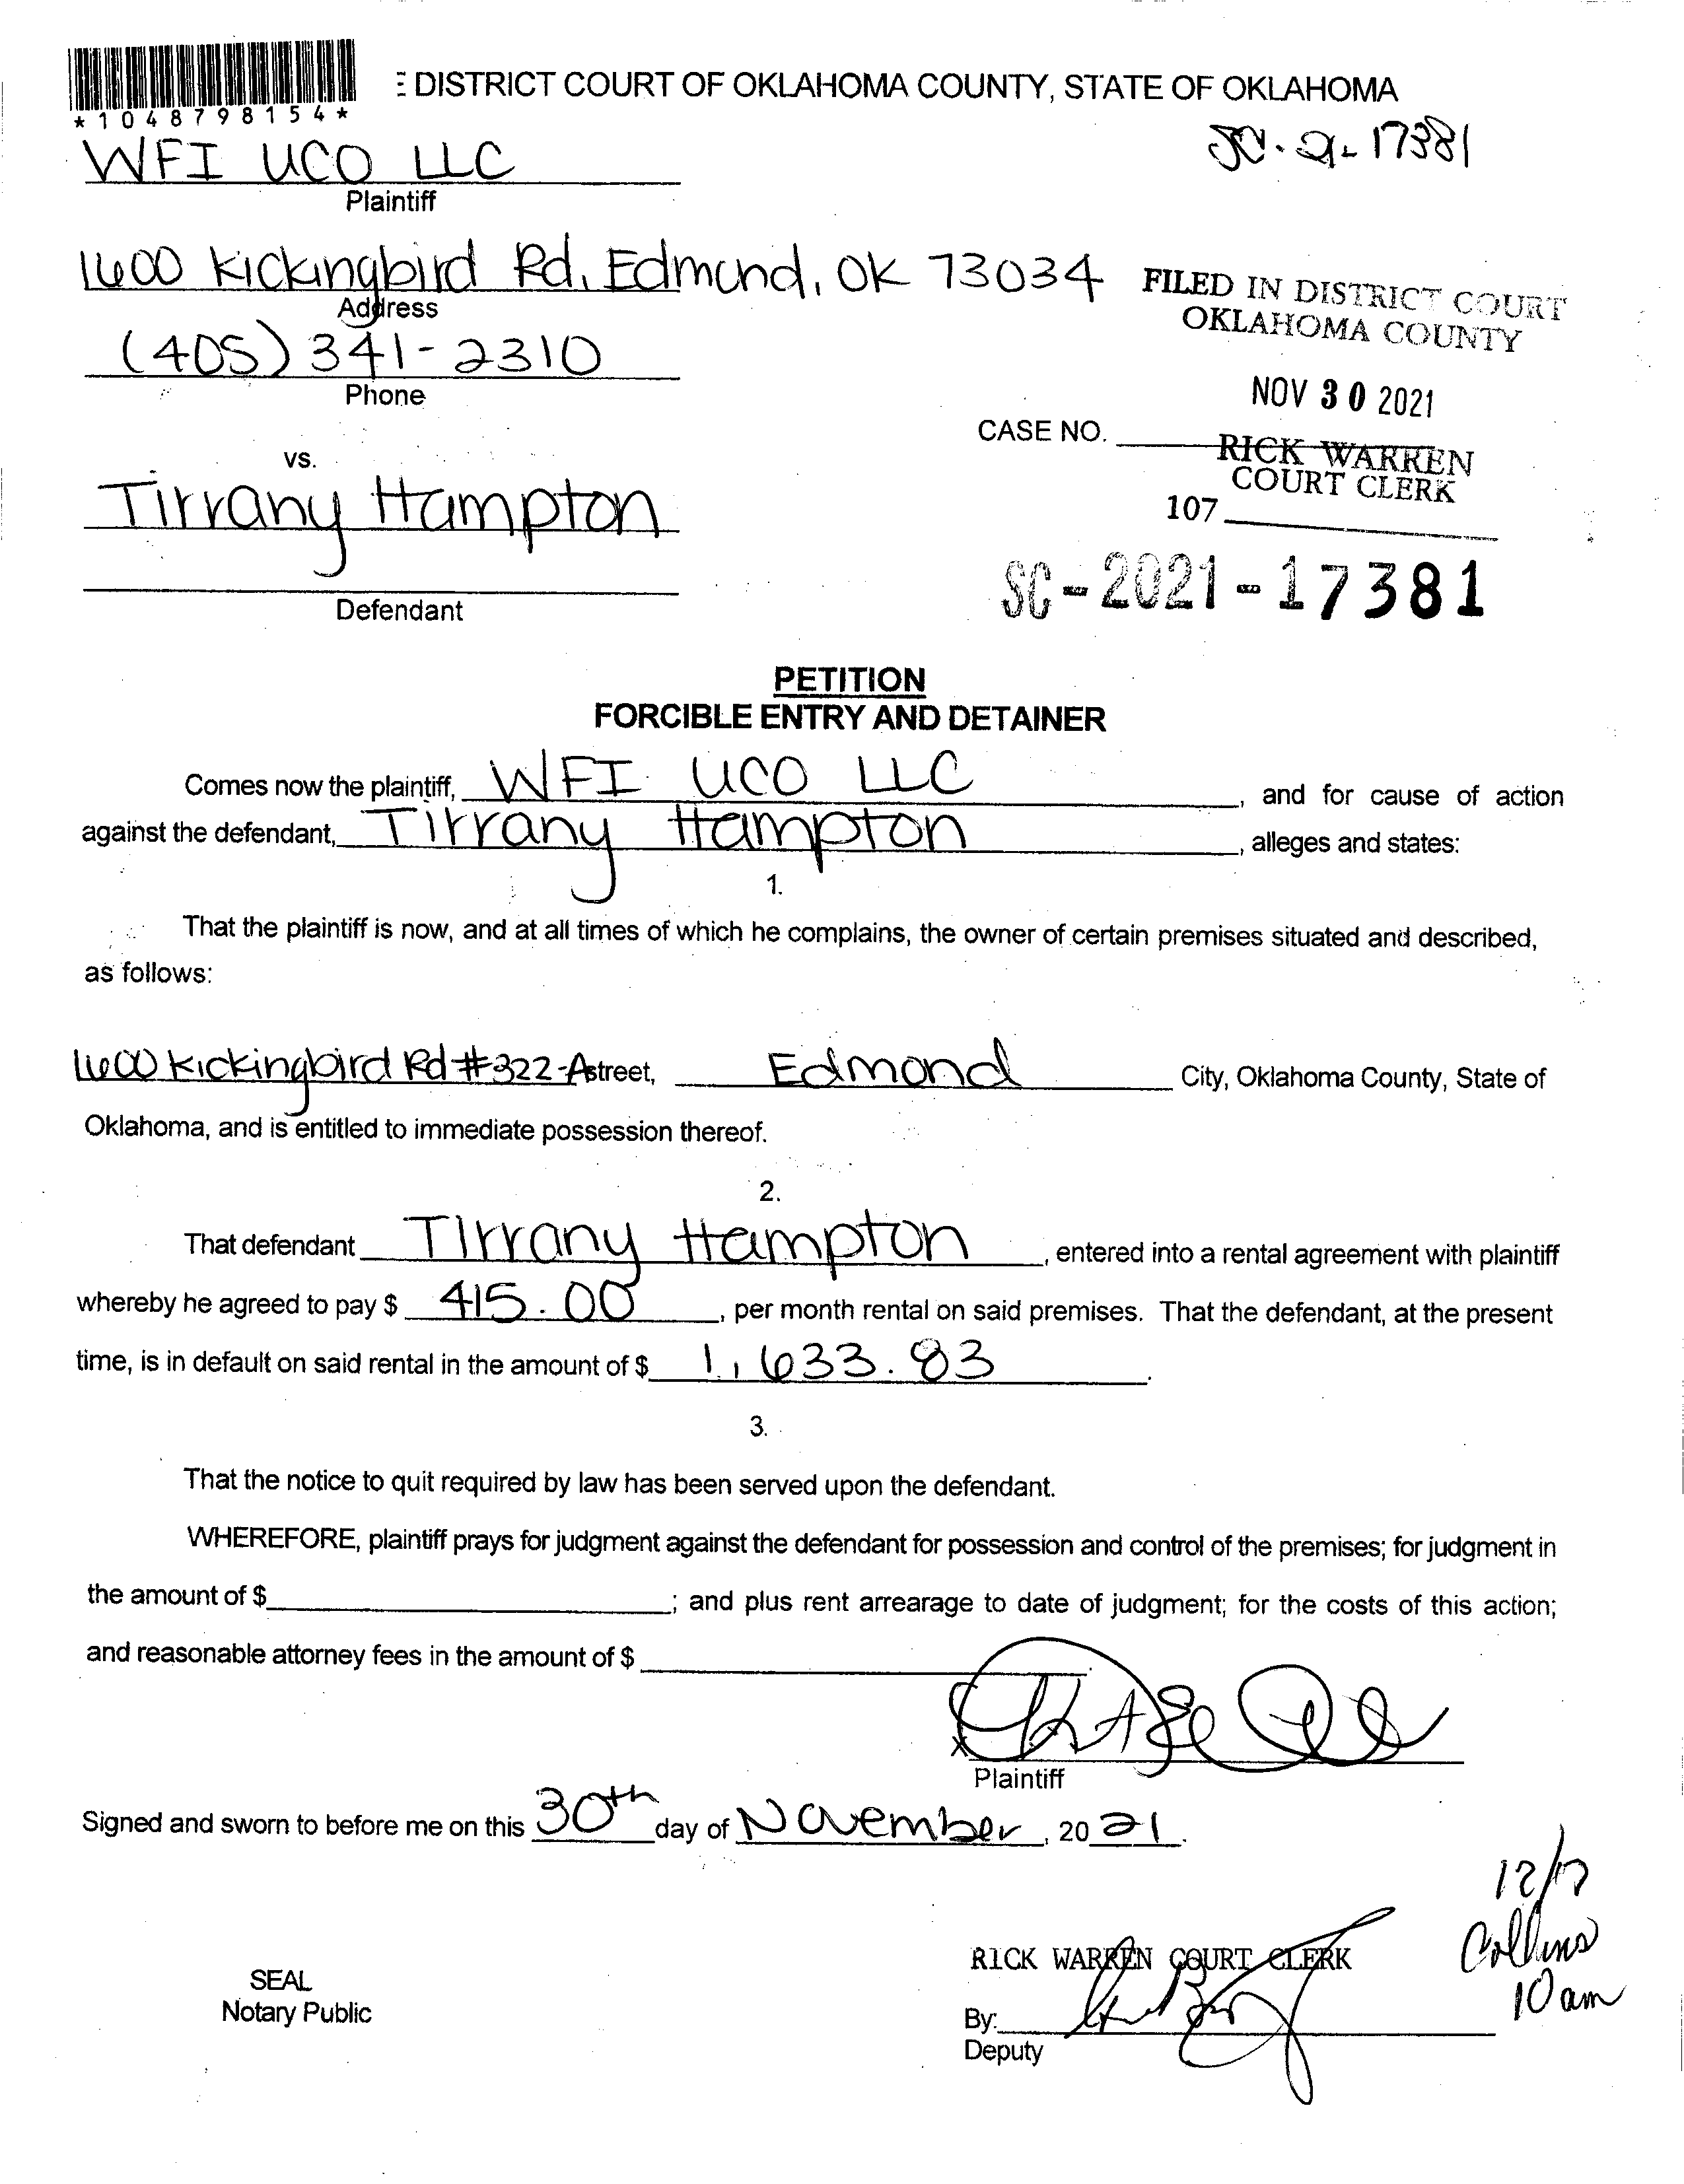 DISTRICT COURT OF OKLAHOMA COUNTY, STATE OF OKLAHOMA
*1048798154*
SC-21-17381
WFI UCO LLC
Plaintiff
1600 Kickingbird Rd. Edmond, OK 73034
Address
FILED IN DISTRICT COURT
OKLAHOMA COUNTY
(405) 341-2310
Phone
NOV 30 2021
CASE NO.
RICK WARREN
COURT CLERK
vs.
107
Tirrany Hampton
Defendant
SC-2021-17381
PETITION
FORCIBLE ENTRY AND DETAINER
Comes now the plaintiff, WFI UCO LLC, and for cause of action
against the defendant, Tirrany Hampton, alleges and states:
1.
That the plaintiff is now, and at all times of which he complains, the owner of certain premises situated and described,
as follows:
1600 Kickingbird Rd #322-A street, Edmond City, Oklahoma County, State of
Oklahoma, and is entitled to immediate possession thereof.
2.
That defendant Tirrany Hampton, entered into a rental agreement with plaintiff
whereby he agreed to pay $ 415.00, per month rental on said premises. That the defendant, at the present
time, is in default on said rental in the amount of $ 1,633.83.
3.
That the notice to quit required by law has been served upon the defendant.
WHEREFORE, plaintiff prays for judgment against the defendant for possession and control of the premises; for judgment in
the amount of $ ; and plus rent arrearage to date of judgment; for the costs of this action;
and reasonable attorney fees in the amount of $ .
X
Plaintiff
Signed and sworn to before me on this 30th day of November, 2021.
12/17
Collins
10am
RICK WARREN COURT CLERK
SEAL
Notary Public
By:
Deputy